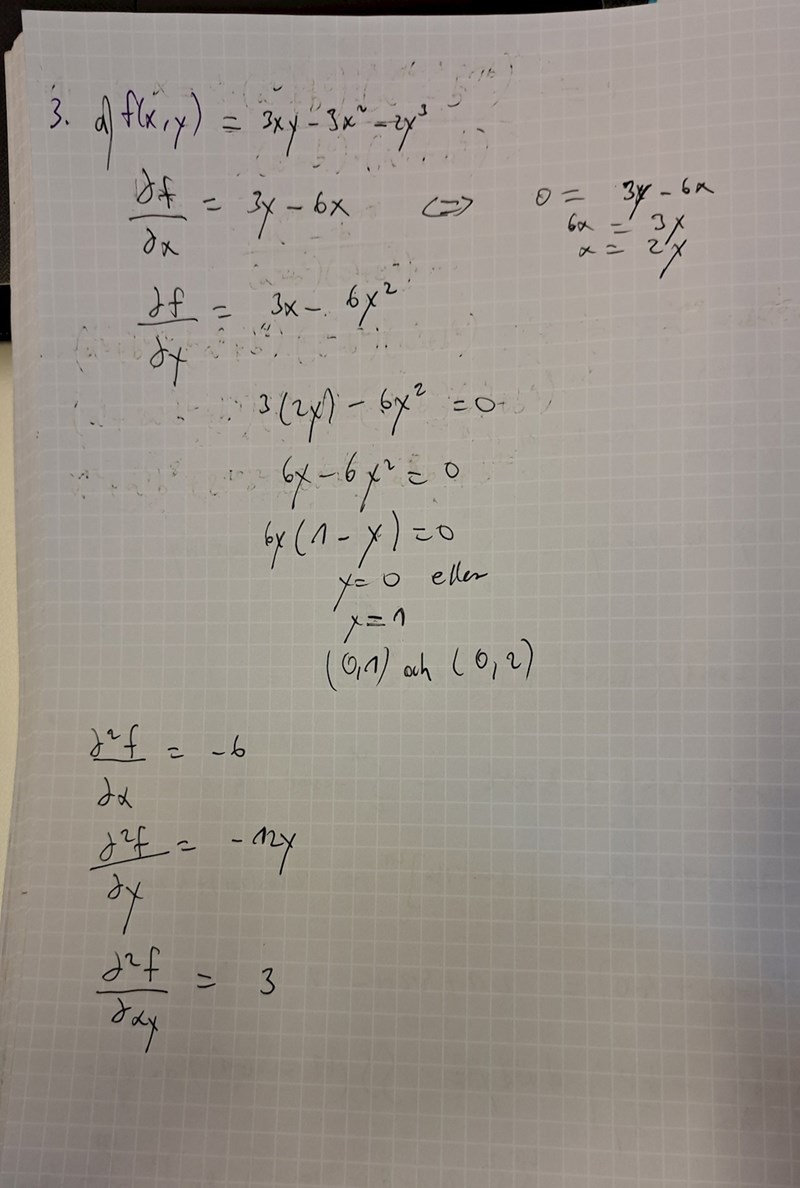 3. a) f(x,y) = 3xy - 3x² - 2y³
∂f/∂x = 3y - 6x ⇔ 0 = 3y - 6x
6x = 3y
x = 2y
∂f/∂y = 3x - 6y²
3(2y) - 6y² = 0
6y - 6y² = 0
6y(1 - y) = 0
y = 0 eller
y = 1
(0,1) och (0,2)
∂²f/∂x = -6
∂²f/∂y = -12y
∂²f/∂xy = 3